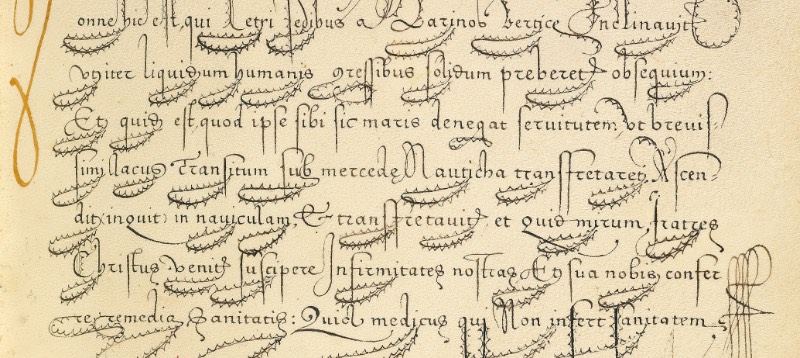 onne hic est, qui Petri pedibus a Marinos Vertice Inclinavit
Vt iter liquidum humanis gressibus solidum preberet obsequium:
Et quid est, quod ipse sibi sic maris denegat servitutem, Vt brevis-
simi lacus Transitum sub mercede Nauticha transfretaret, Ascen-
dit (inquit) in naviculam, Et transfretavit et quid mirum, fratres
Christus venit suscipere Infirmitates nostras Et sua nobis confer
re remedia, Sanitatis: Quia medicus qui Non infert sanitatem